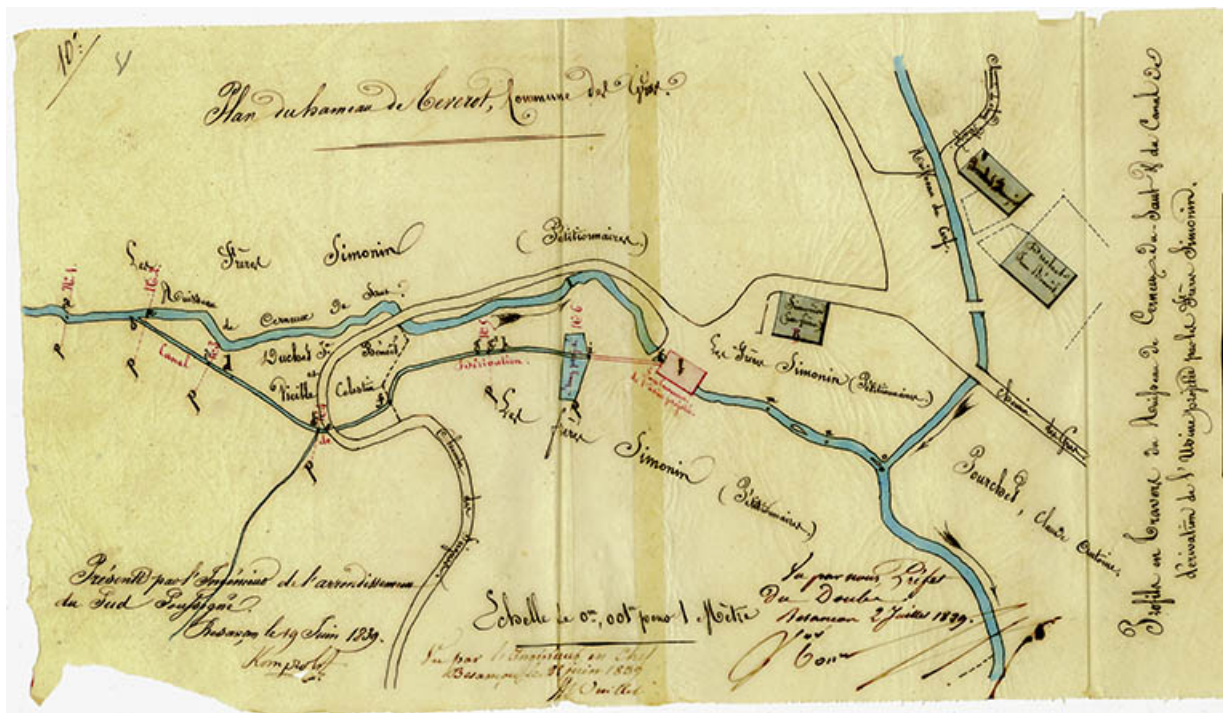 10e
Plan du hameau de Tererot, Commune des Gras.
Les Frères Simonin (Pétitionnaires)
No. 1.
No. 2
Ruisseau de Cerneux du Saut.
Canal
No. 3
Duchet Fs. Benoit
et
Vieille Celestin
de
No. 5
Dérivation.
No. 6
P
P
P
P
P
Les Frères Simonin (Pétitionnaires)
de l'Usine projetée
Les Frères Simonin (Pétitionnaires)
Ruisseau de
Chemin des Gras
Pourchet, Claude Antoine.
Présenté par l'Ingénieur de l'arrondissement
du Sud Soussigné.
Besançon le 19 Juin 1839.
Echelle de 0m,001 pour 1 Mètre
Vu par l'Ingénieur en Chef
Besançon, le Juin 1839
Vu par nous Préfet
du Doubs
Besançon 2 Juillet 1839.
Profils en Travers du Ruisseau de Cerneux du Saut & du Canal de
dérivation de l'Usine projetée par les Frères Simonin.